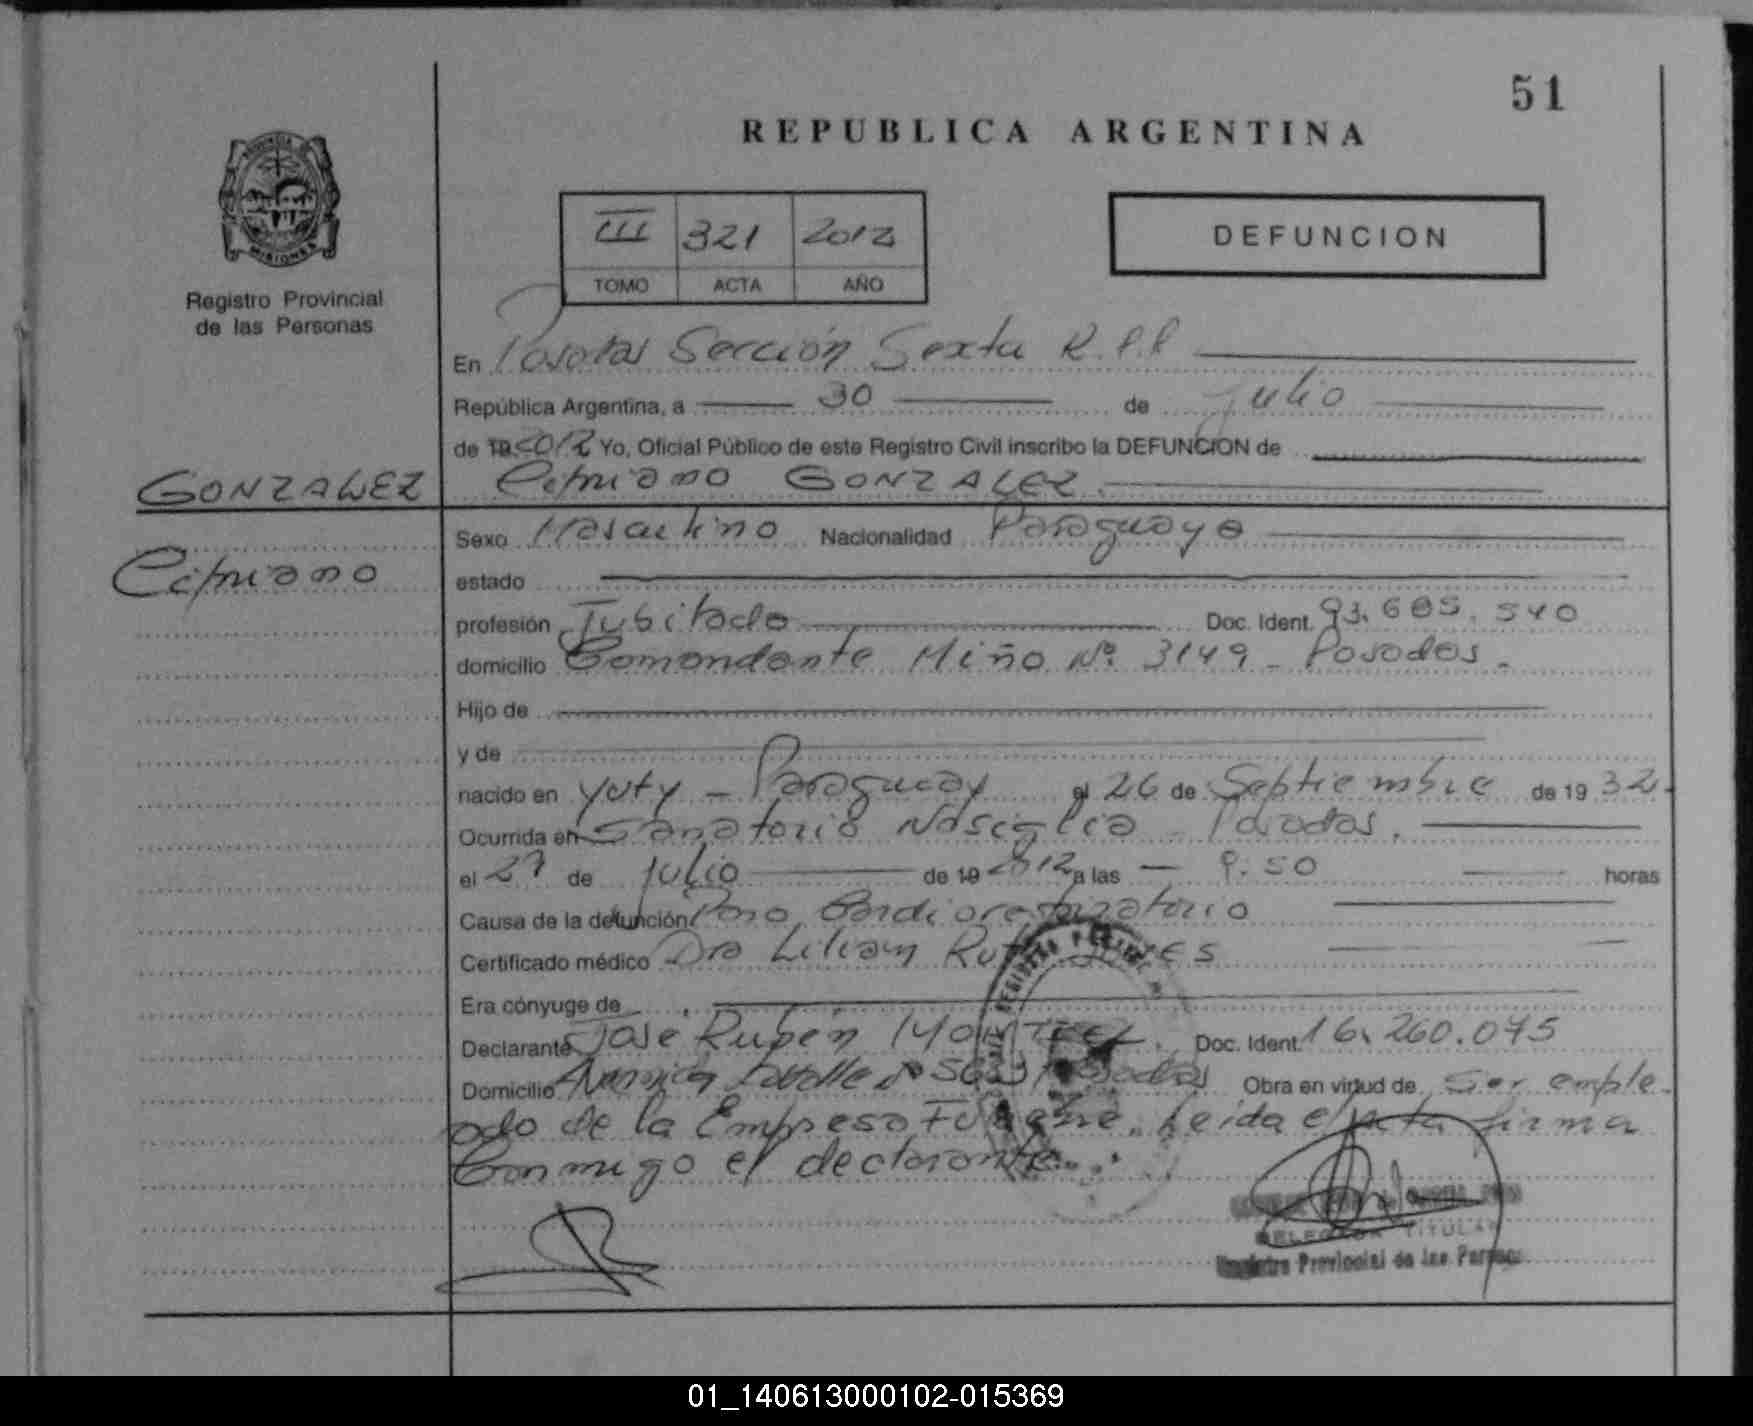 51
REPUBLICA ARGENTINA
III 321 2012
TOMO ACTA AÑO
DEFUNCION
MISIONES
Registro Provincial
de las Personas
En Posadas Sección Sexta R.P.P
República Argentina, a 30 de Julio
de 19 2012 Yo, Oficial Público de este Registro Civil inscribo la DEFUNCION de
GONZALEZ
Cipriano GONZALEZ.
Cipriano
Sexo Masculino Nacionalidad Paraguaya
estado
profesión Jubilado Doc. Ident. 93.685.540
domicilio Comandante Miño Nº 3149 - Posadas.
Hijo de
y de
nacido en Yuty - Paraguay el 26 de Septiembre de 19 32.
Ocurrida en Sanatorio Nosiglia - Posadas.
el 27 de Julio de 19 2012 a las 9.50 horas
Causa de la defunción Paro Cardiorespiratorio
Certificado médico Dra Lilian
Era cónyuge de
Declarante José Rubén Doc. Ident. 16.260.075
Domicilio Lavalle Posadas Obra en virtud de Ser emple-
ado de la Empresa Fúnebre. Leida el acta firma
Conmigo el declarante.
DELEGADA TITULAR
Registro Provincial de las Personas
01_140613000102-015369